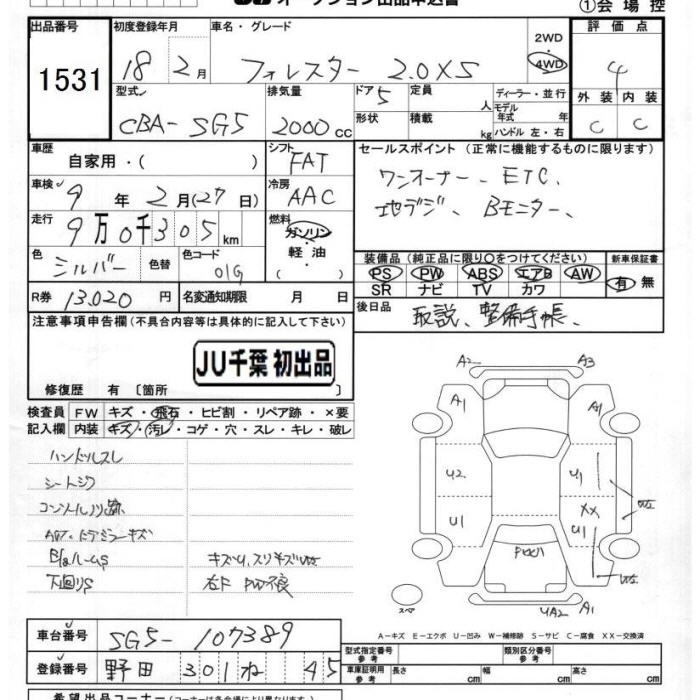 オークション出品申込書
①会場控
出品番号
1531
初度登録年月
18 2月
車名・グレード
フォレスター 2.0XS
2WD
4WD
評価点
4
外装 内装
C C
型式
CBA-SG5
排気量
2000cc
ドア 5
形状
定員 人
積載 kg
ディーラー・並行
モデル年式 年
ハンドル 左・右
車歴 自家用・( )
シフト FAT
車検 9年 2月(27日)
冷房 AAC
走行 9万0千305km
燃料 ガソリン
軽油
( )
色 シルバー 色替
色コード 01G
R券 13,020円
名変通知期限 月 日
セールスポイント (正常に機能するものに限ります)
ワンオーナー、ETC、
地デジ、Bモニター、
装備品 (純正品に限り○をつけてください)
PS PW ABS エアB AW
SR ナビ TV カワ
新車保証書
有 無
後日品 取説、整備手帳、
注意事項申告欄 (不具合内容等は具体的に記入して下さい)
JU千葉 初出品
修復歴 有 〔箇所 〕
検査員記入欄
FW キズ・飛石・ヒビ割・リペア跡・×要
内装 キズ・汚レ・コゲ・穴・スレ・キレ・破レ
ハンドルスレ
シートシワ
下回りS
右F PW不良
A2 A3
A1 A1
U2 U1
U1 XX U1
UA2 A1
スペア
A-キズ E-エクボ U-凹み W-補修跡 S-サビ C-腐食 XX-交換済
車台番号 SG5-107389
登録番号 野田 301 ね 45
型式指定番号 参考
類別区分番号 参考
車庫証明用 参考 長さ cm 幅 cm 高さ cm
希望出品コーナー